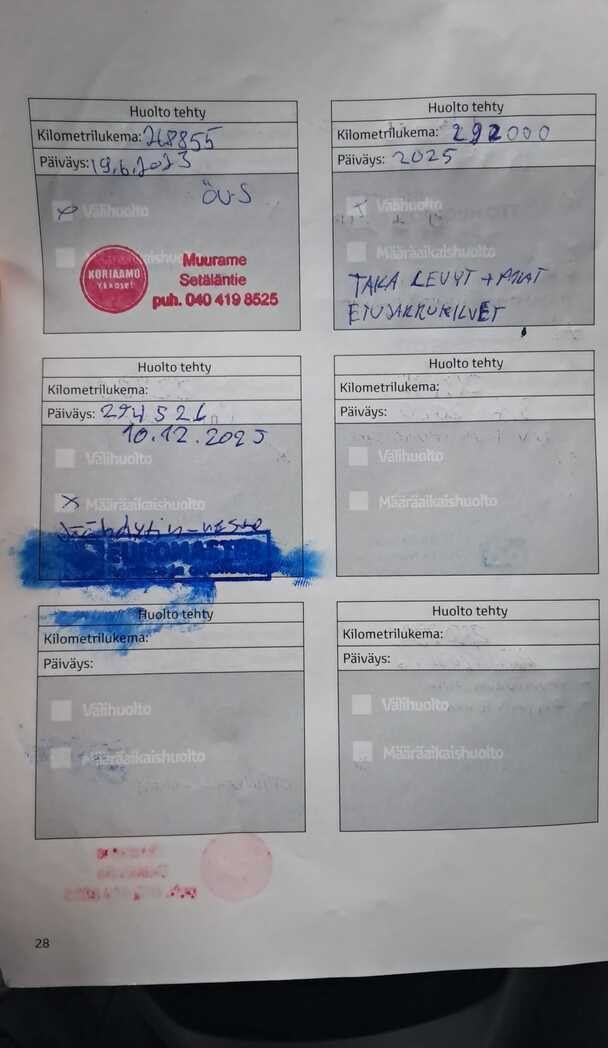 Huolto tehty
Kilometrilukema: 268855
Päiväys: 19.6.2023
ÖV-S
x Välihuolto
KORIAAMO
Muurame
Setäläntie
puh. 040 419 8525
Huolto tehty
Kilometrilukema: 292000
Päiväys: 2025
x Välihuolto
Määräaikaishuolto
TAKA LEVYT + PALAT
ETUJARRUKILVET
Huolto tehty
Kilometrilukema:
Päiväys: 294521
10.12.2025
Välihuolto
x Määräaikaishuolto
Jäähdytin-neste
EUROMASTER
Huolto tehty
Kilometrilukema:
Päiväys:
Välihuolto
Määräaikaishuolto
Huolto tehty
Kilometrilukema:
Päiväys:
Välihuolto
Määräaikaishuolto
Huolto tehty
Kilometrilukema:
Päiväys:
Välihuolto
Määräaikaishuolto
28